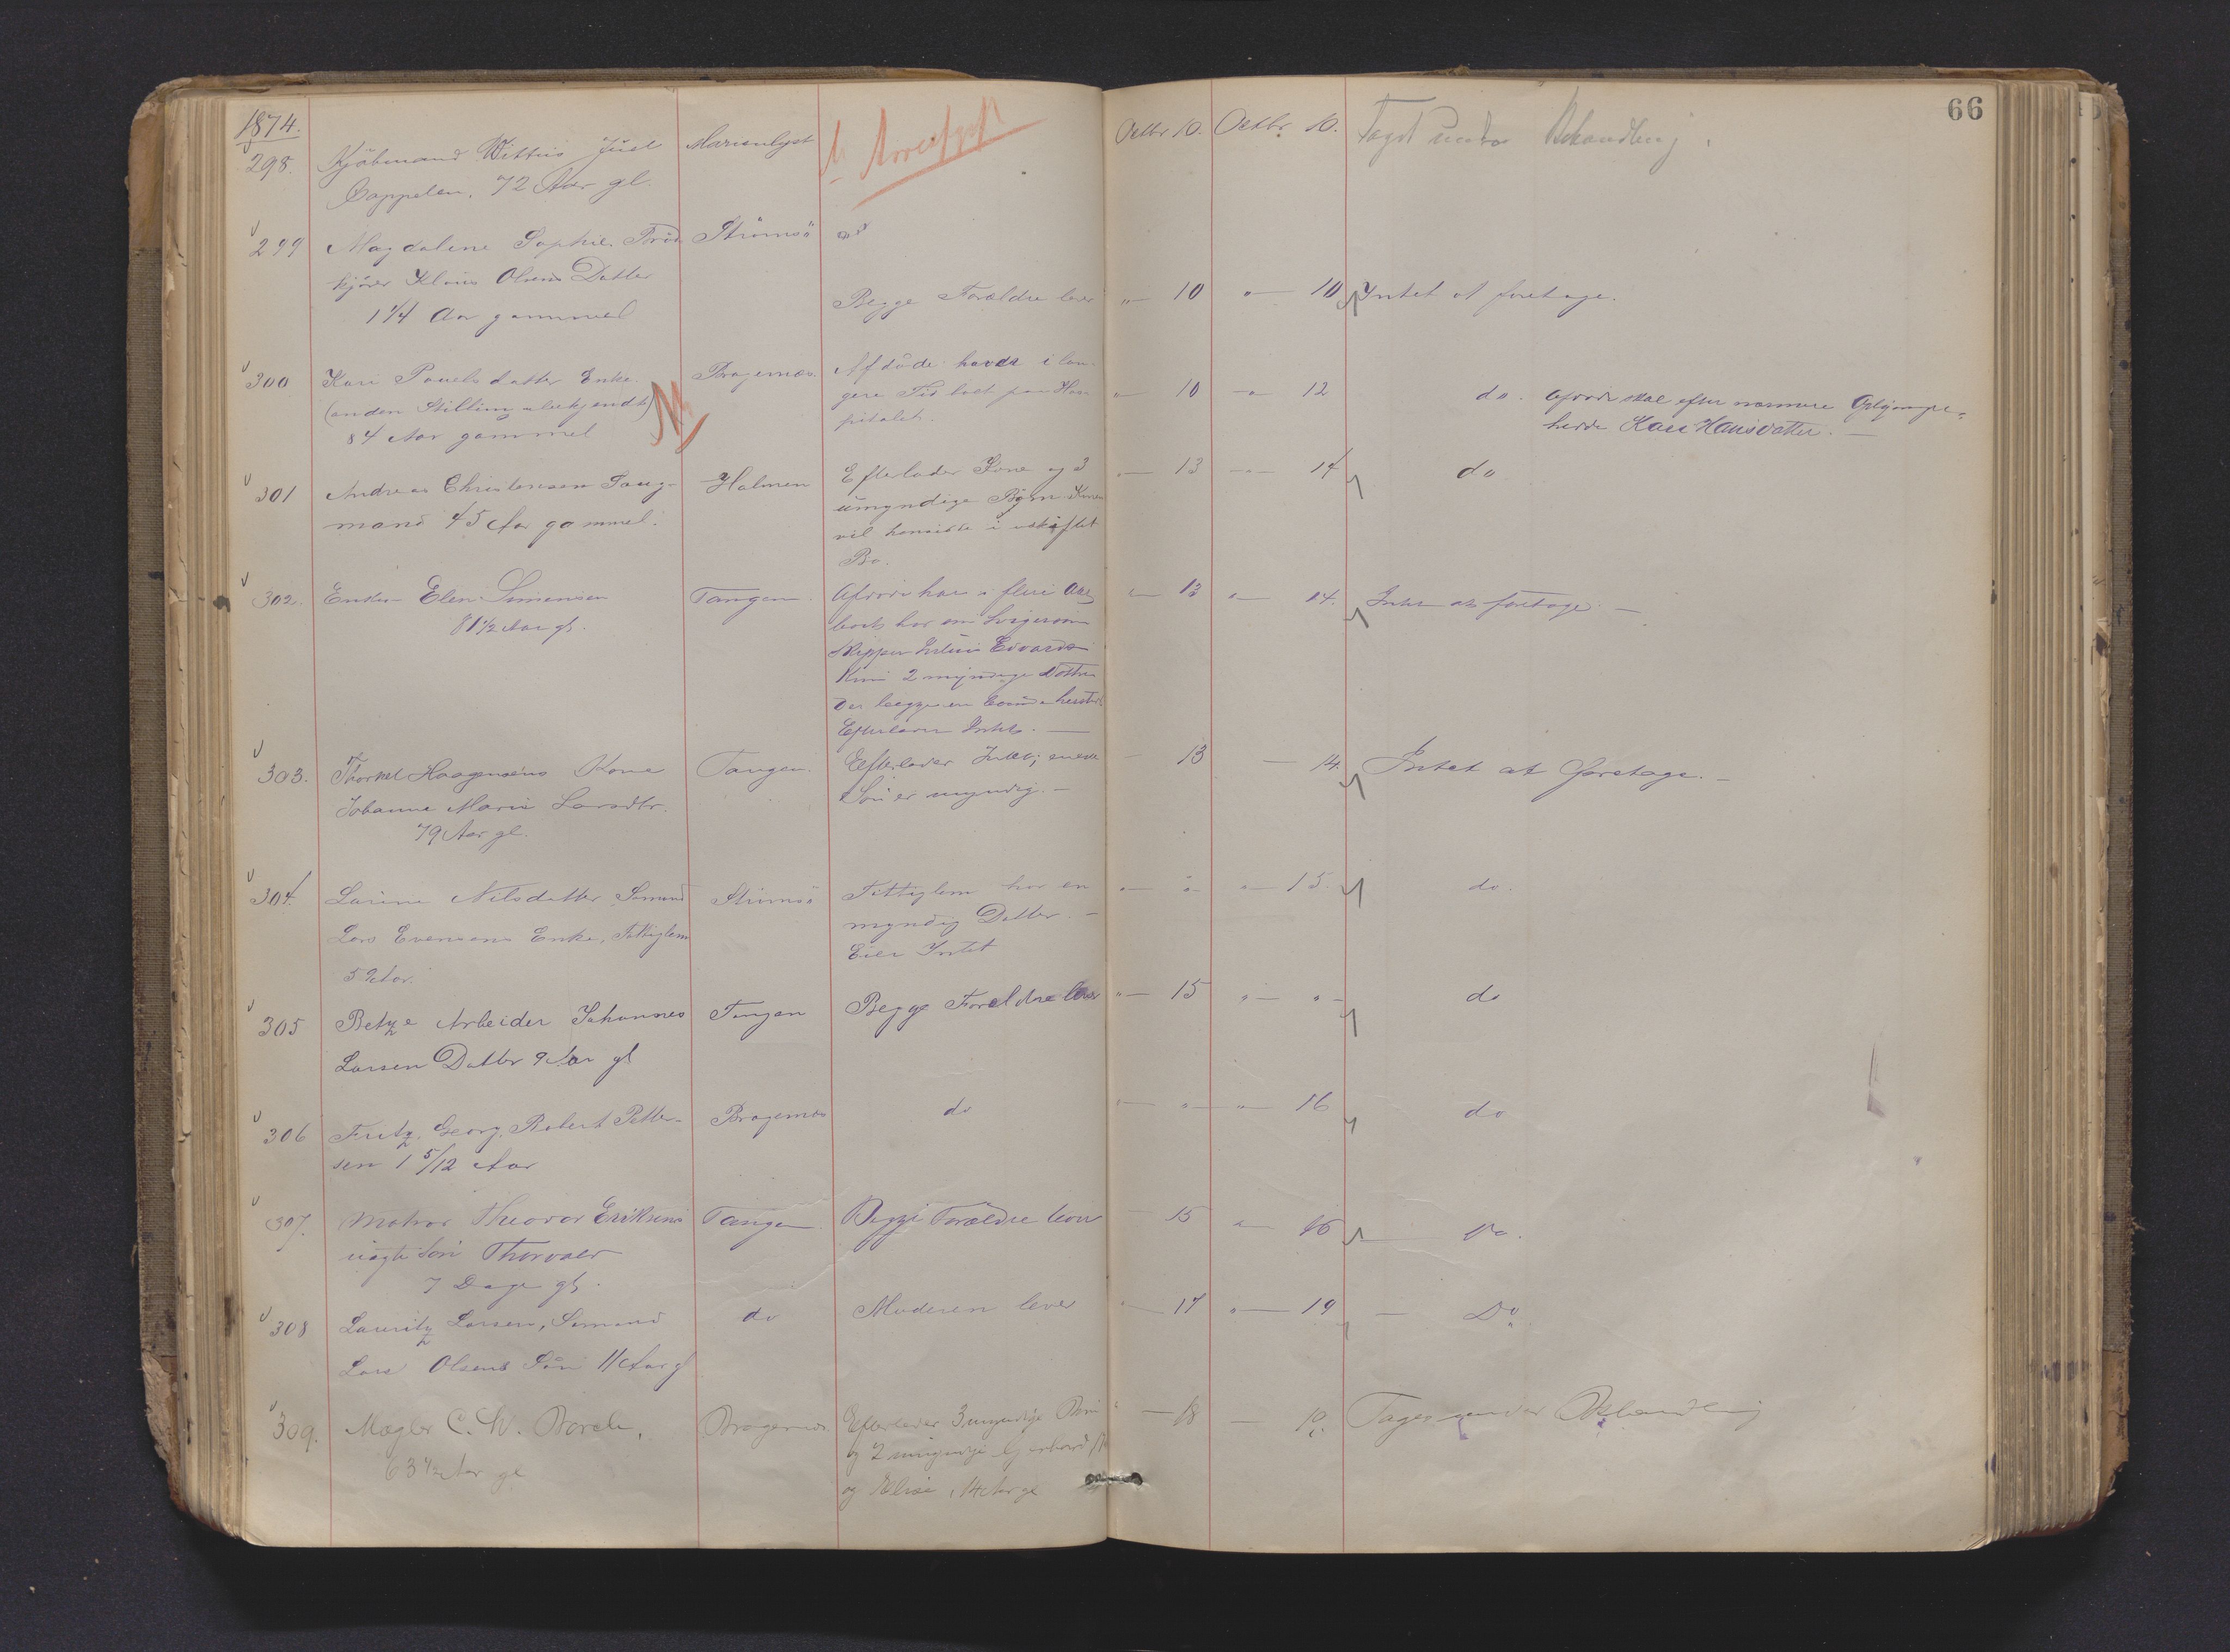 66
1874.
298. Kjöbmand Wittus Juel Marienlyst Octbr 10. Octbr. 10. Taget under Behandling.
Cappelen, 72 Aar gl.
299 Magdalene Sophie Strömsö
kjörer Olsens Datter
1 1/4 Aar gammel
Begge Forældre lever " 10 " 10 Intet at foretage.
300 Kari Pouelsdatter Enke. Bragernæs Afdöde havde i læn-
(anden Stilling ubekjendt) gere Tid lagt paa Hos- " 10 " 12 do. Afdöde skal efter nærmere
84 Aar gammel pitalet. hedde Kari Hansdatter.
301 Andreas Christensen Saug- Holmen Efterlader Kone og 3 " 13 " 14 do
mand 45 Aar gammel. umyndige Børn. Konen
vil hensidde i uskiftet
Bo.
302. Enken Elen Simensen Tangen. Afdöde har i flere Aar " 13 " 14. Intet at foretage.
81 1/2 Aar gl. boet hos sin Svigersön
Skipper Edvards
Kun 2 myndige Döttre
der begge ere
Efterlader Intet.
303. Thorkel Haagensens Kone Tangen. Efterlader Intet; eneste 13 14. Intet at foretage.
Johanne Marie Larsdtr. Sön er myndig.
79 Aar gl.
304. Laurine Nilsdatter Sömand Strömsö Fattiglem har en " " " 15. do.
Lars Evensens Enke, Fattiglem myndig Datter.
52 Aar. Eier Intet
305 Betze Arbeider Johannes Tangen Begge Forældre lever " 15 " " do
Larsen Datter 9 Aar gl
306 Fritz Georg Robert Petter- Bragernæs do " " " 16 do
sen 1 5/12 Aar
307. Matros Theodor Eriksens Tangen Begge Forældre lever 15 " 16 Do.
uægte Sön Thorvald
7 Dage gl.
308 Lauritz Larsen, Sömand do Moderen lever " 17 " 19 Do
Lars Olsens Sön 11 Aar gl
309. Mægler C. W. Borch, Bragernæs. Efterlader 3 myndige Börn 18 Tages under Behandling
63 1/2 Aar gl og 2 umyndige
og Elise, 14 Aar gl